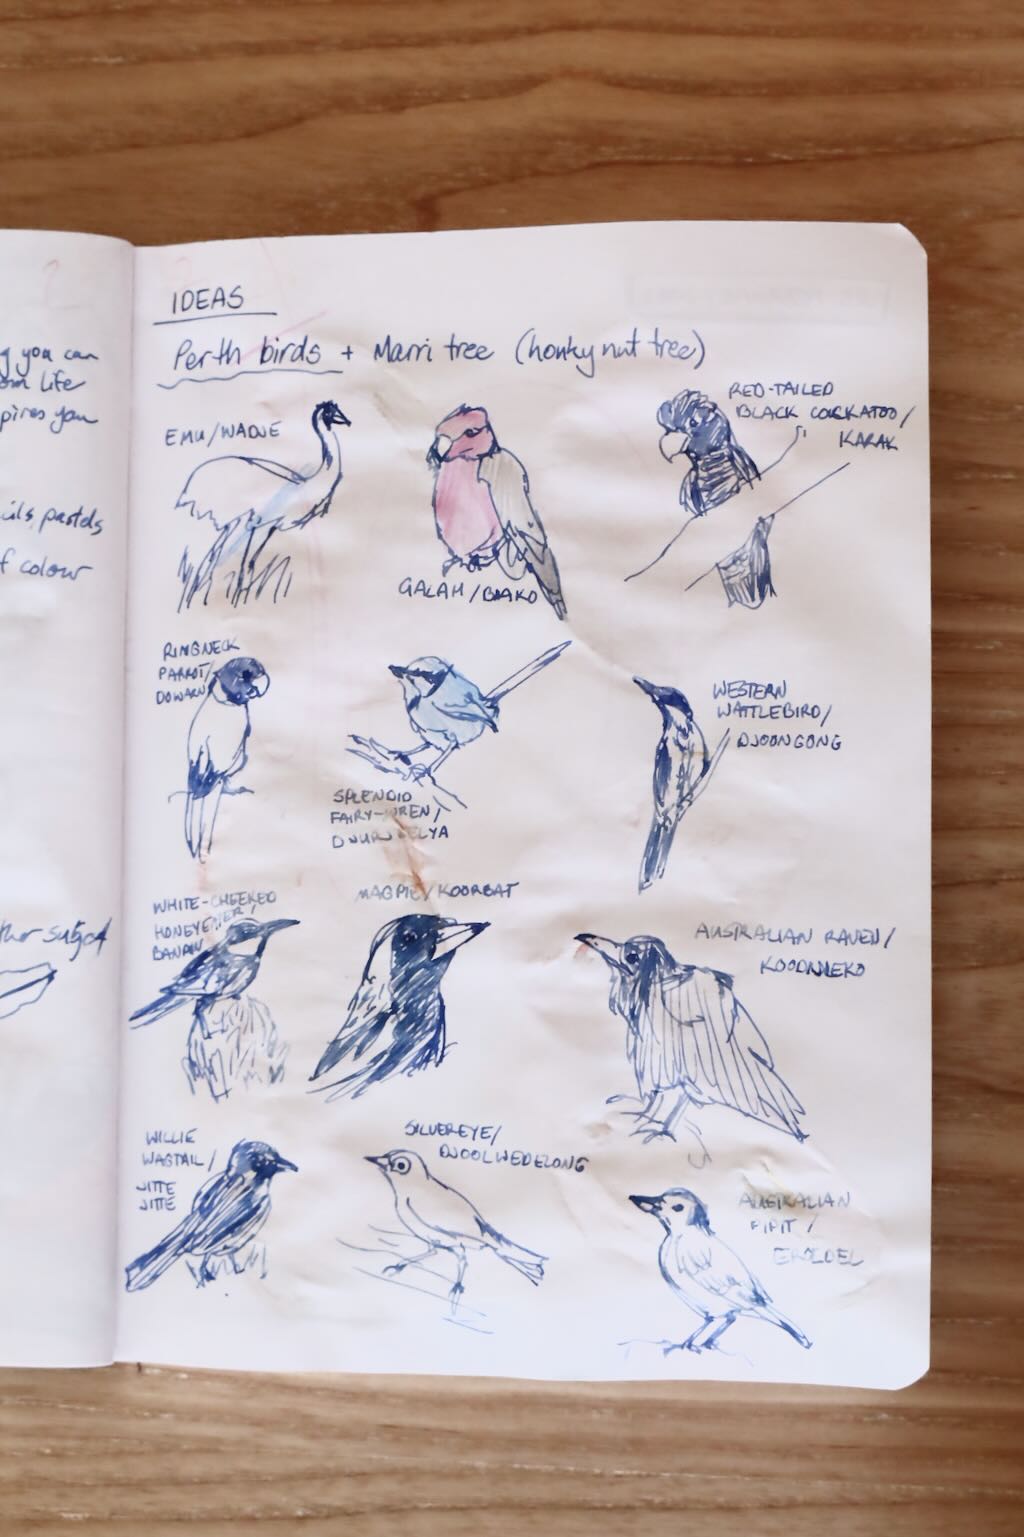 g you can
om life
pires you
cils, pastels
f colour
ther subject
IDEAS
Perth birds + Marri tree (honky nut tree)
EMU/WADJE
GALAH/
RED-TAILED
BLACK COCKATOO/
KARAK
RINGNECK
PARROT/
DOWARN
SPLENDID
FAIRY-WREN/
WESTERN
WATTLEBIRD/
DJOONGONG
WHITE-CHEEKED
HONEYEATER/
BANDIN
MAGPIE/KOORBAT
AUSTRALIAN RAVEN/
WILLIE
WAGTAIL/
JITTE
JITTE
SILVEREYE/
DJOOLWEDELONG
AUSTRALIAN
PIPIT/